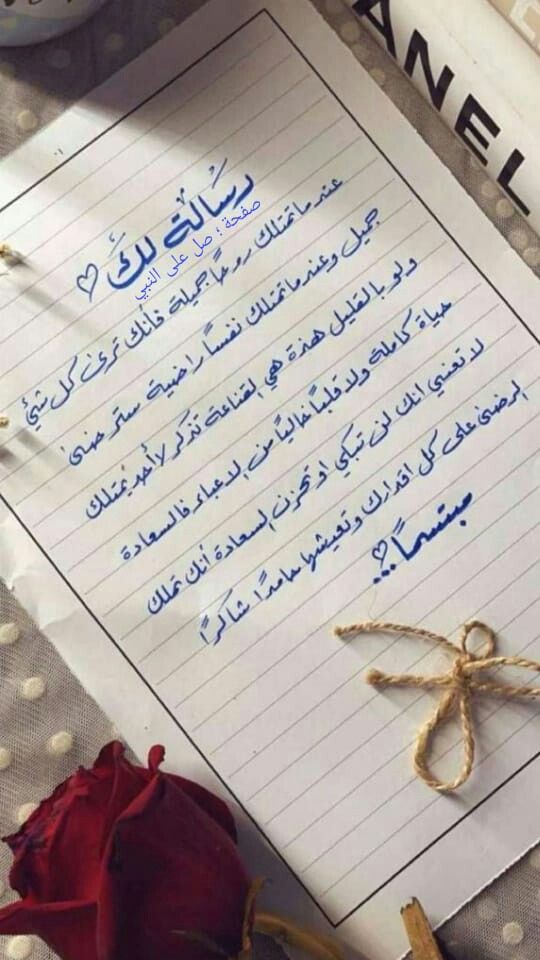 رسالة لكَ ♡
صفحة ؛ صل على النبي
عندما تمتلك روحاً جميلة فأنك ترى كل شيئ
جميل وعندما تمتلك نفساً راضية سترضى
ولو بالقليل هذه هي القناعة تذكر لا أحد يمتلك
حياة كاملة ولا قلباً خالياً من الاعباء فالسعادة
لا تعني انك لن تبكي او تحزن السعادة أنك تملك
الرضى على كل اقدارك وتعيشها حامدًا شاكرًا
مبتسمًا...♡
ANEL